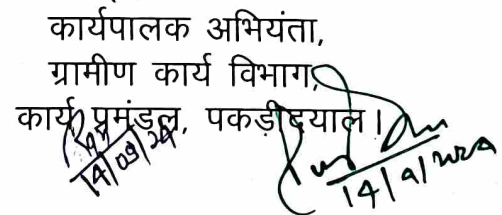 कार्यपालक अभियंता,
ग्रामीण कार्य विभाग,
कार्य प्रमंडल, पकड़ीदयाल।
14/09/24
14/9/2024